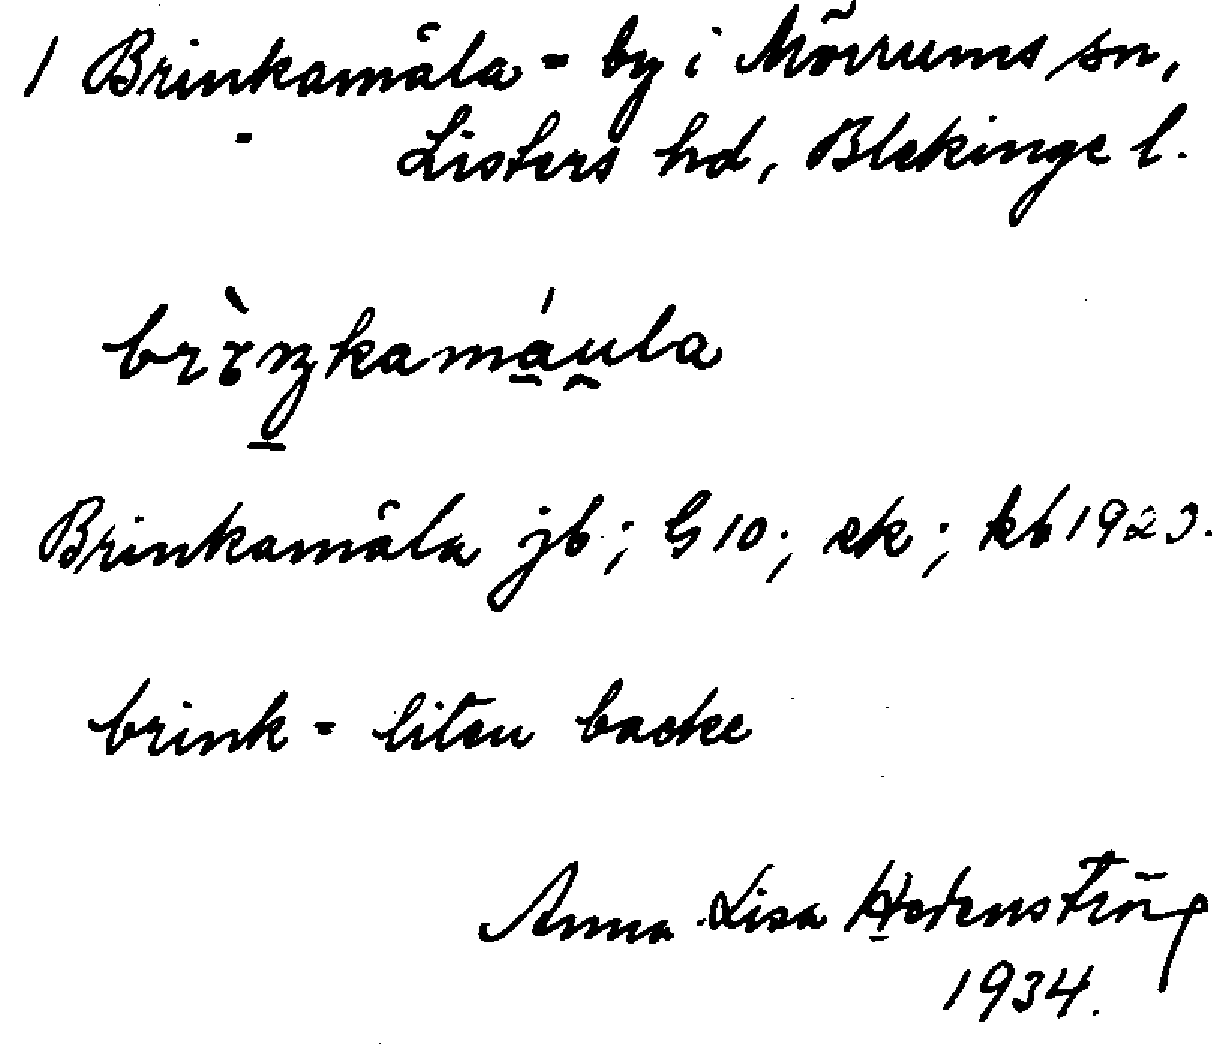 1 Brinkamåla - by i Mörrums sn,
Listers hd, Blekinge l.
brìŋkamáu̯la
Brinkamåla jb; G 10; ek; kb 1923.
brink - liten backe
Anna Lisa
1934.